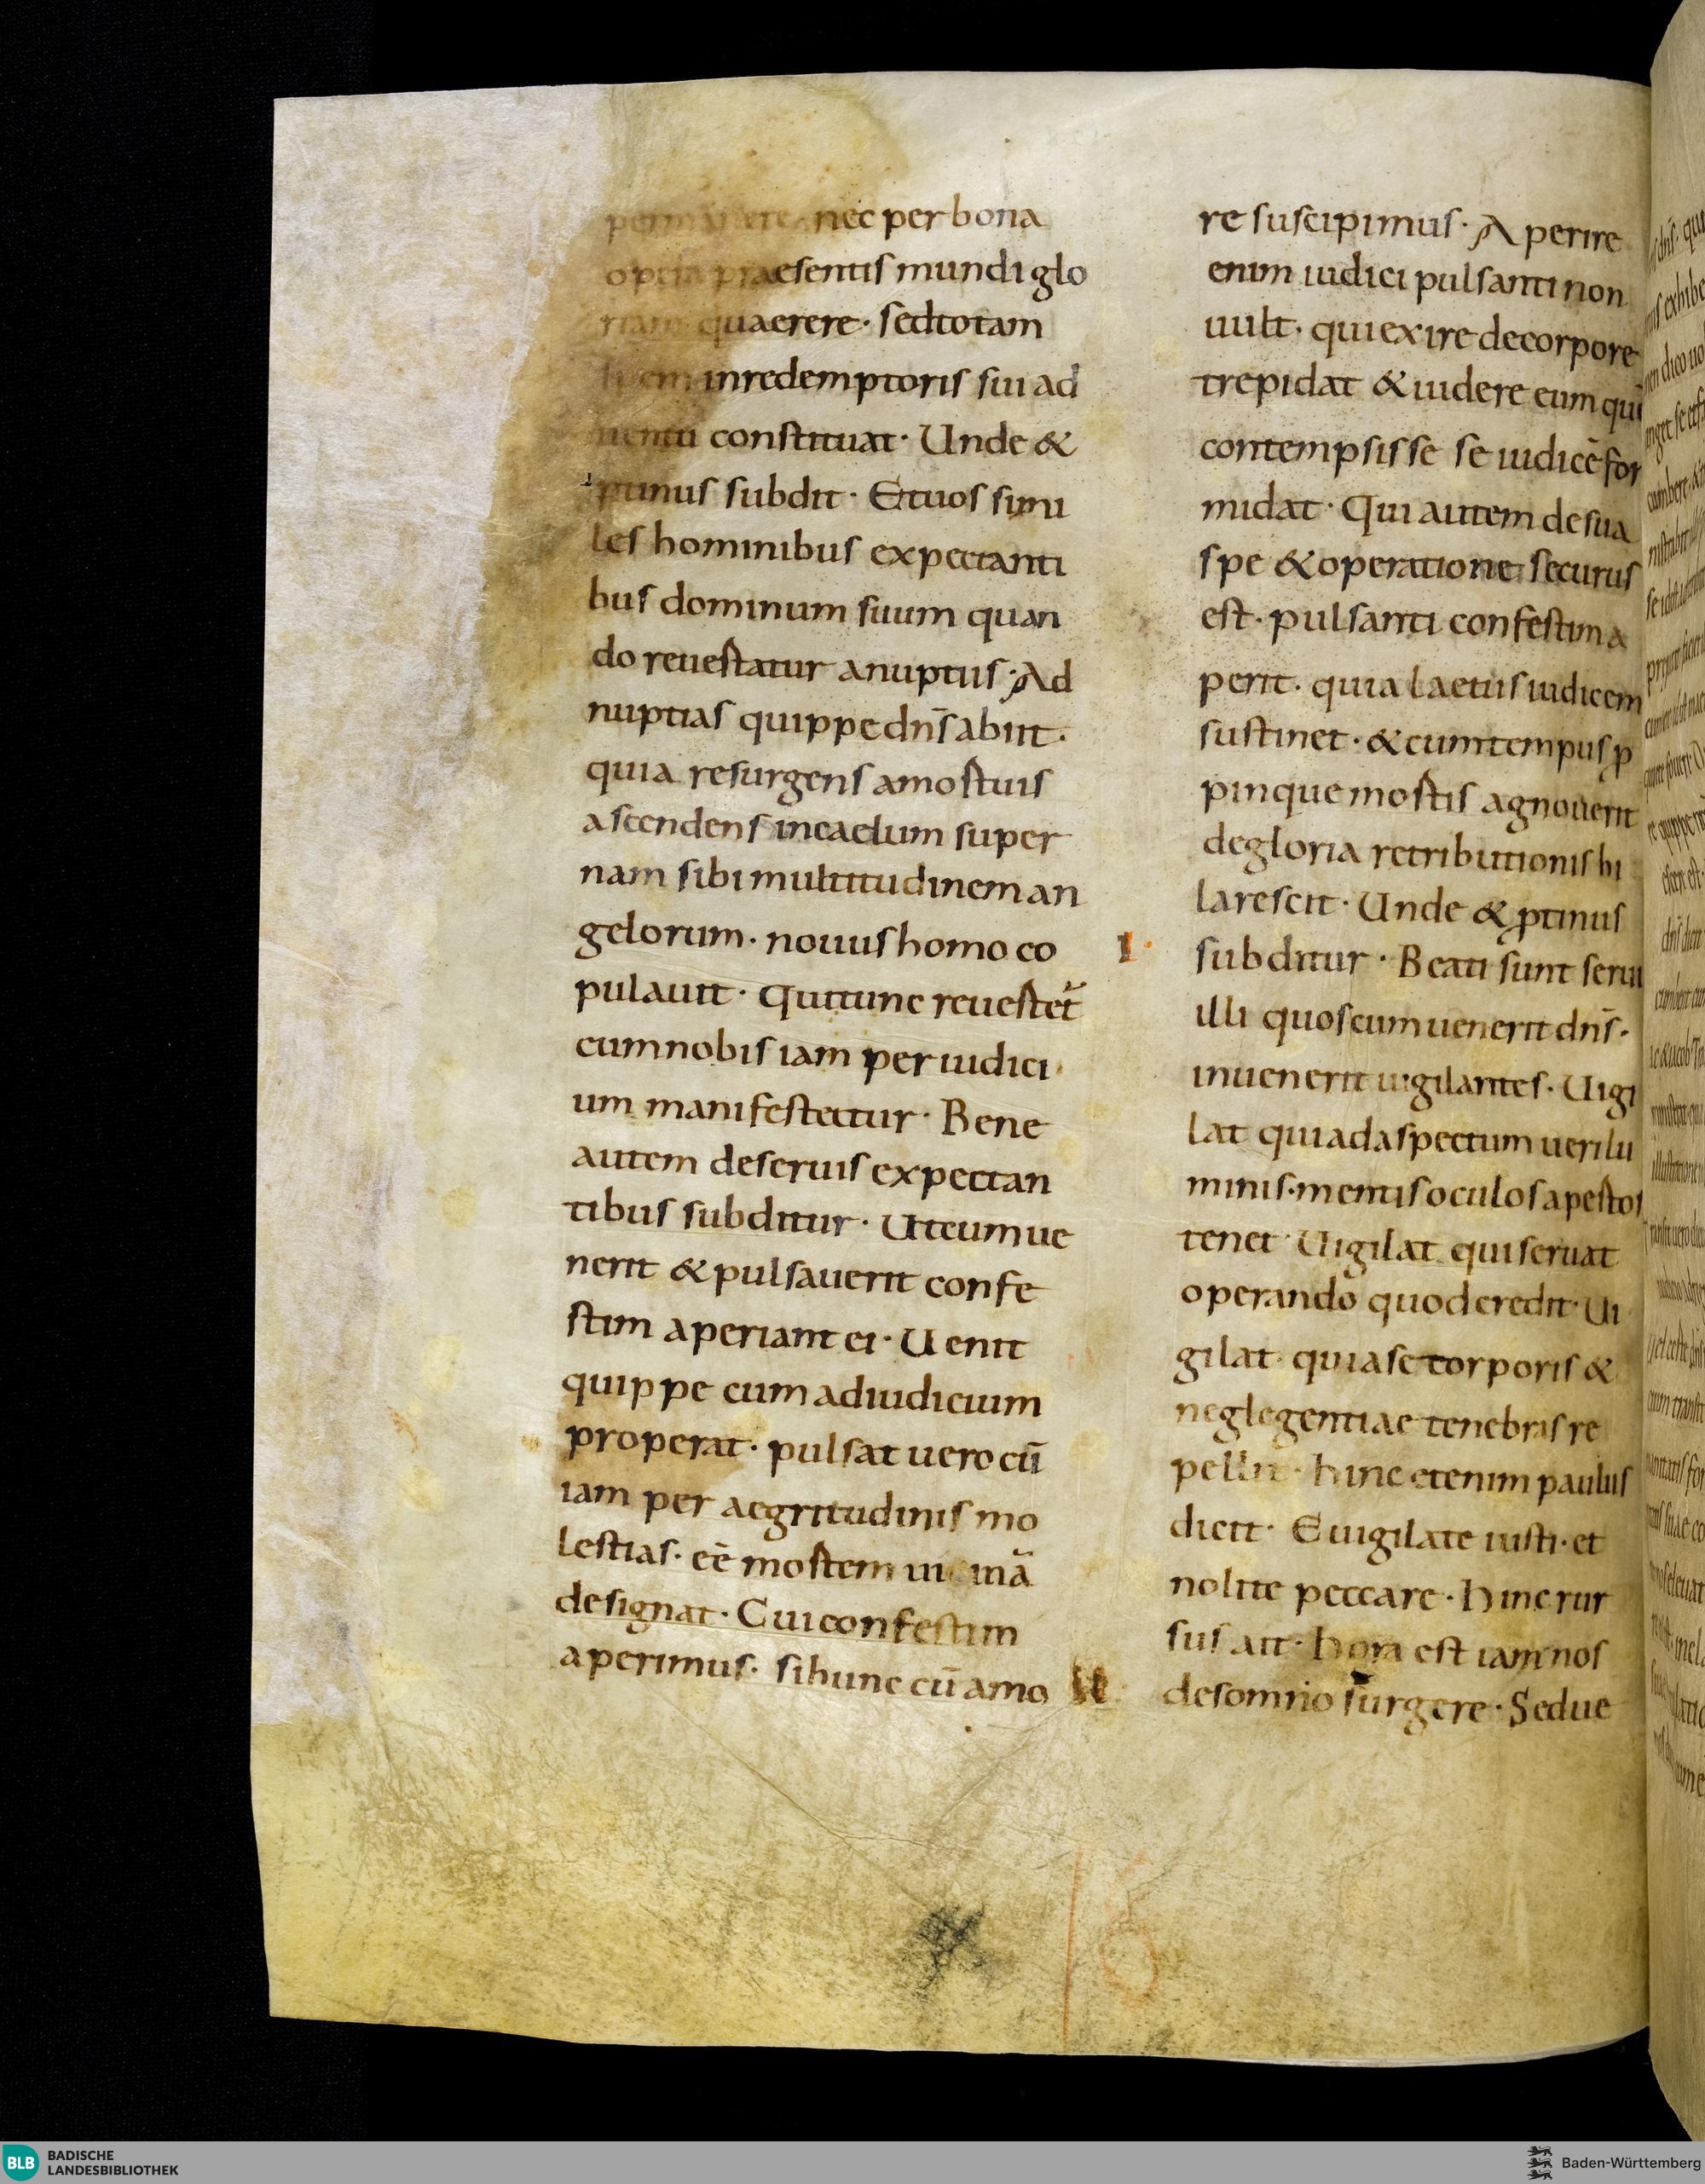 nec per bona
opera praesentis mundi glo
riam quaerere · sed totam
spem in redemptoris sui ad
uentu constituat · Unde &
ptinus subdit · Et uos simi
les hominibus expectanti
bus dominum suum quan
do reuertatur a nuptiis · Ad
nuptias quippe dn̄s abiit ·
quia resurgens a mortuis
ascendens in caelum super
nam sibi multitudinem an
gelorum · nouus homo co
pulauit · Qui tunc reuertet᷑
cum nobis iam per iudici
um manifestatur · Bene
autem de seruis expectan
tibus subditur · Ut cum ue
nerit & pulsauerit confe
stim aperiant ei · Uenit
quippe cum ad iudicium
properat · pulsat uero cū
iam per aegritudinis mo
lestias · eē mortem uicinā
designat · Cui confestim
aperimus · si hunc cū amo
re suscipimus · Aperire
enim iudici pulsanti non
uult · qui exire de corpore
trepidat & uidere eum quē
contempsisse se iudicē for
midat · Qui autem de sua
spe & operatione securus
est · pulsanti confestim a
perit · quia laetus iudicem
sustinet · & cum tempus ꝓ
pinque mortis agnouerit
de gloria retributionis hi
larescit · Unde & ptinus
subditur · Beati sunt serui
illi quos cum uenerit dn̄s ·
inuenerit uigilantes · Uigi
lat qui ad aspectum ueri lu
minis · mentis oculos apertos
tenet · Uigilat qui seruat
operando quod credit · Ui
gilat · qui a se torporis &
neglegentiae tenebras re
pellit · Hinc etenim paulus
dicit · Euigilate iusti · et
nolite peccare · Hinc rur
sus ait · Hora est iam nos
de somno surgere · Sed ue
BLB BADISCHE
LANDESBIBLIOTHEK
Baden-Württemberg